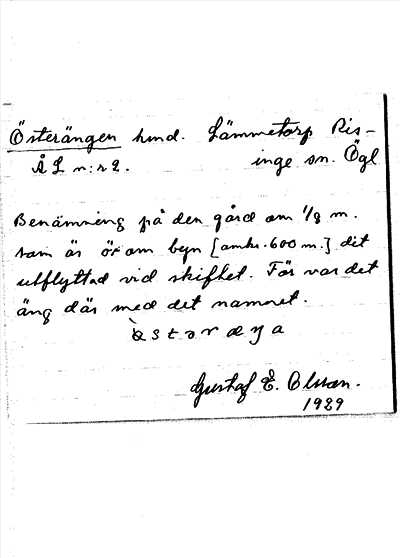 Österängen hmd. Lämmetorp Ris-
ÅL n:r 2. inge sn. Ögl
Benämning på den gård om 1/8 m.
som är öxom byn [omkr. 600 m.] dit
utflyttad vid skiftet. Förr var det
äng där med det namnet.
Gustaf E. Olsson.
1929